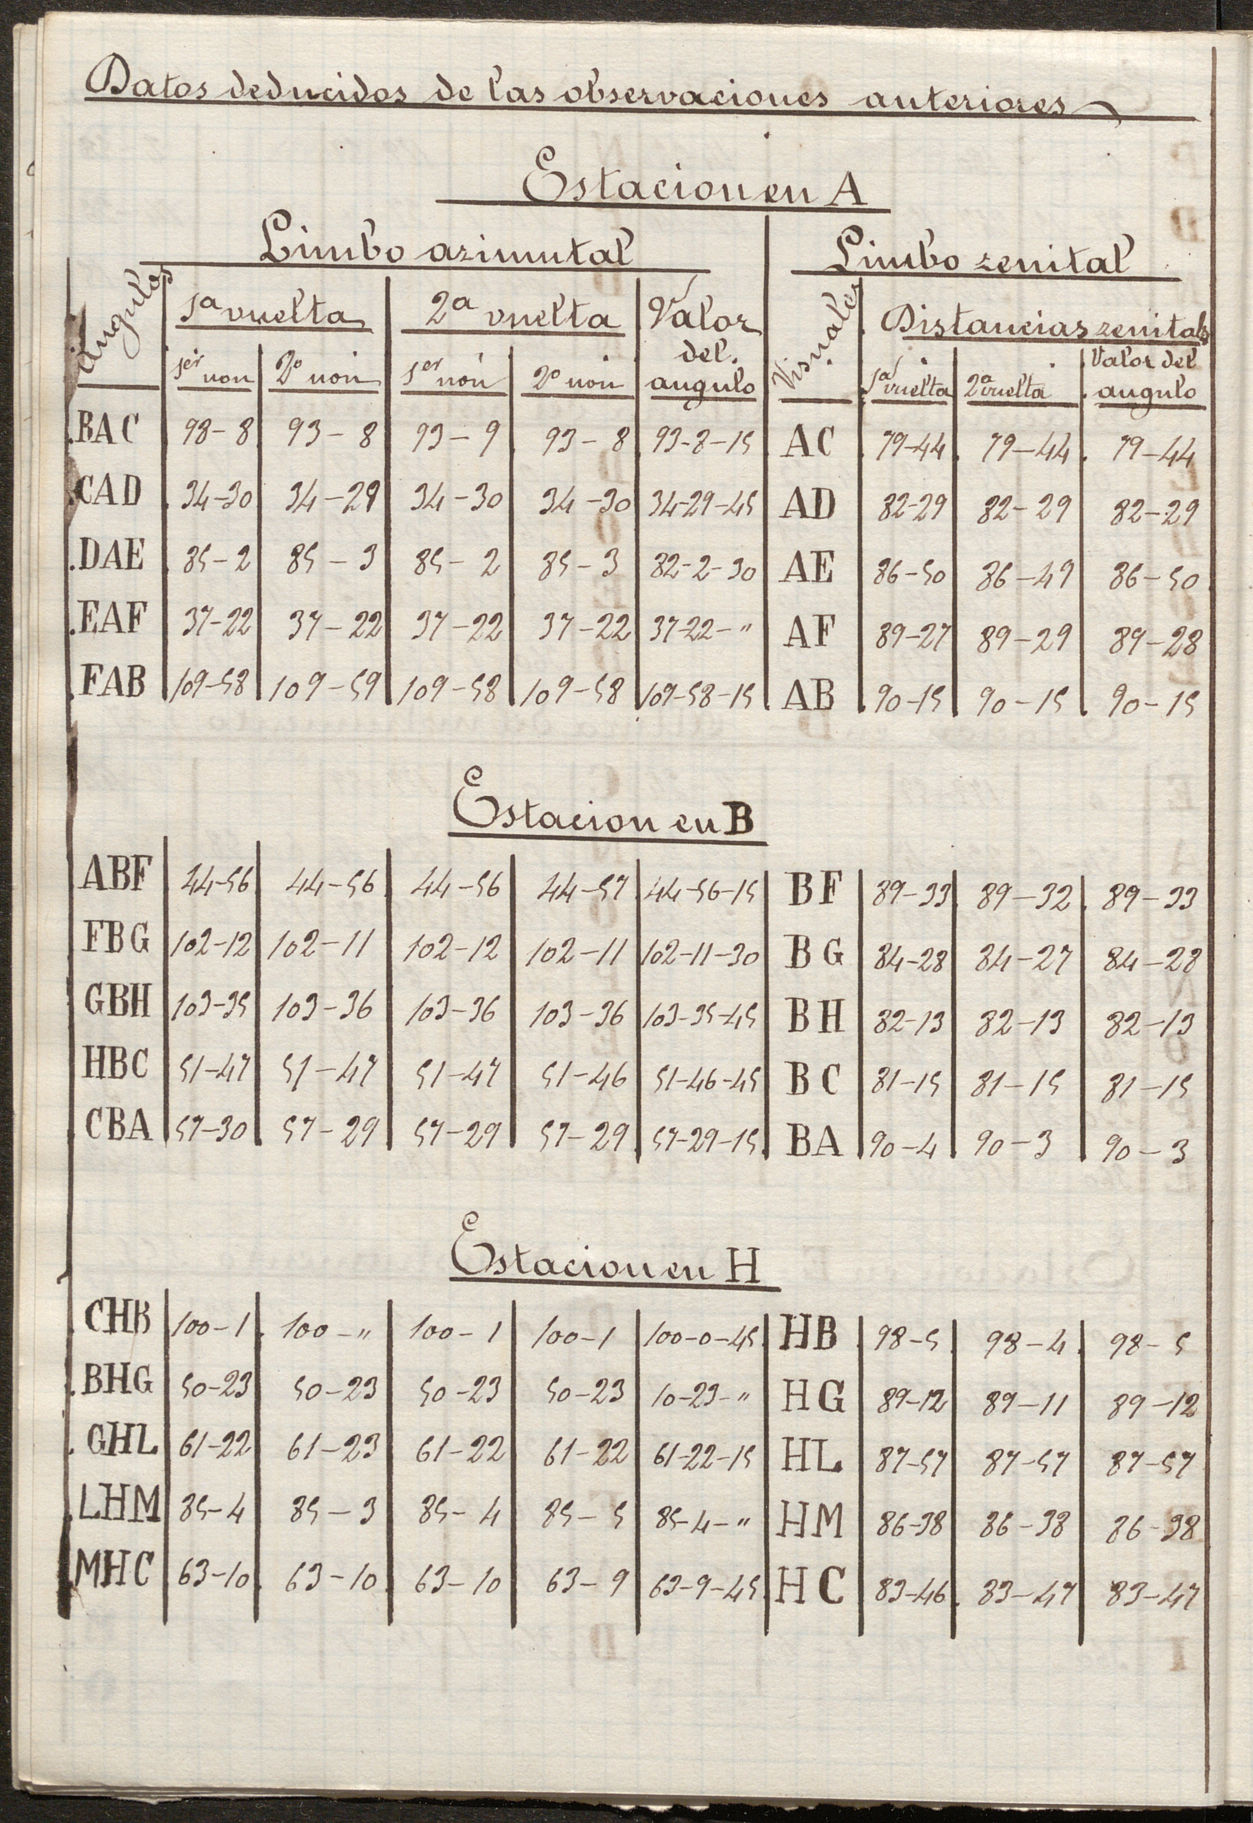 Datos deducidos de las observaciones anteriores
Estacion en A
Limbo azimutal Limbo zenital
Angulos 1ª vuelta 2ª vuelta Valor del angulo Visuales Distancias zenitals
1er non 2º non 1er non 2º non 1ª vuelta 2ª vuelta Valor del angulo
BAC 98-8 93-8 93-9 93-8 93-8-15 AC 79-44 79-44 79-44
CAD 34-30 34-29 34-30 34-30 34-29-45 AD 82-29 82-29 82-29
DAE 85-2 85-3 85-2 85-3 82-2-30 AE 86-50 86-49 86-50
EAF 37-22 37-22 37-22 37-22 37-22-" AF 89-27 89-29 89-28
FAB 109-58 109-59 109-58 109-58 109-58-15 AB 90-15 90-15 90-15
Estacion en B
ABF 44-56 44-56 44-56 44-57 44-56-15 BF 89-33 89-32 89-33
FBG 102-12 102-11 102-12 102-11 102-11-30 BG 84-28 84-27 84-28
GBH 103-35 103-36 103-36 103-36 103-35-45 BH 82-13 82-13 82-13
HBC 51-47 51-47 51-47 51-46 51-46-45 BC 81-15 81-15 81-15
CBA 57-30 57-29 57-29 57-29 57-29-15 BA 90-4 90-3 90-3
Estacion en H
CHB 100-1 100-" 100-1 100-1 100-0-45 HB 98-5 98-4 98-5
BHG 50-23 50-23 50-23 50-23 10-23-" HG 89-12 89-11 89-12
GHL 61-22 61-23 61-22 61-22 61-22-15 HL 87-57 87-57 87-57
LHM 85-4 85-3 85-4 85-5 85-4-" HM 86-38 86-38 86-38
MHC 63-10 63-10 63-10 63-9 63-9-45 HC 83-46 83-47 83-47